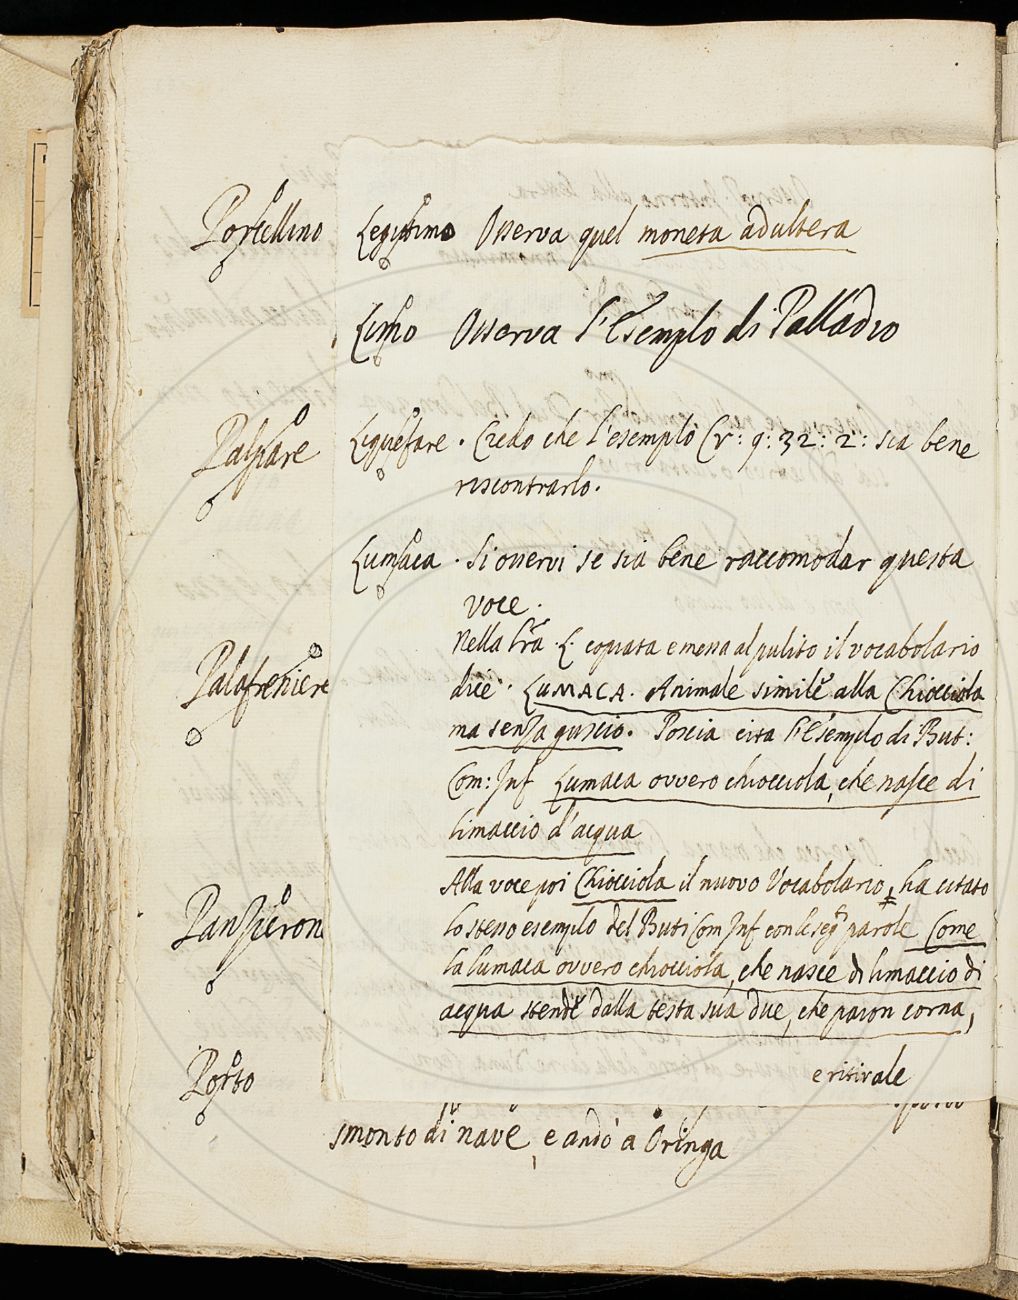 Porcellino
Legittimo Osserva quel moneta adultera
Limo Osserva l'Esemplo di Palladio
Palpare
Liquefare . Credo che l'esemplo Cr: 9: 32: 2: sia bene
riscontrarlo.
Lumaca . Si osservi se sia bene raccomodar questa
voce .
Nella lrã . L copiata e messa al pulito il vocabolario
Palafreniere
dice . LUMACA . Animale simile alla Chiocciola
ma senza guscio . Poscia cita l'Esemplo di But:
Com: Inf Lumaca ovvero chiocciola, che nasce di
limaccio d'acqua
Alla voce poi Chiocciola il nuovo Vocabolario, ha citato
Panzieron
lo stesso esemplo del Buti Com Inf con le segti parole Come
la lumaca ovvero chiocciola, che nasce di limaccio di
acqua stende dalla testa sua due, che paion corna,
e ritirale
Porto
smontò di nave, e andò a Oringa